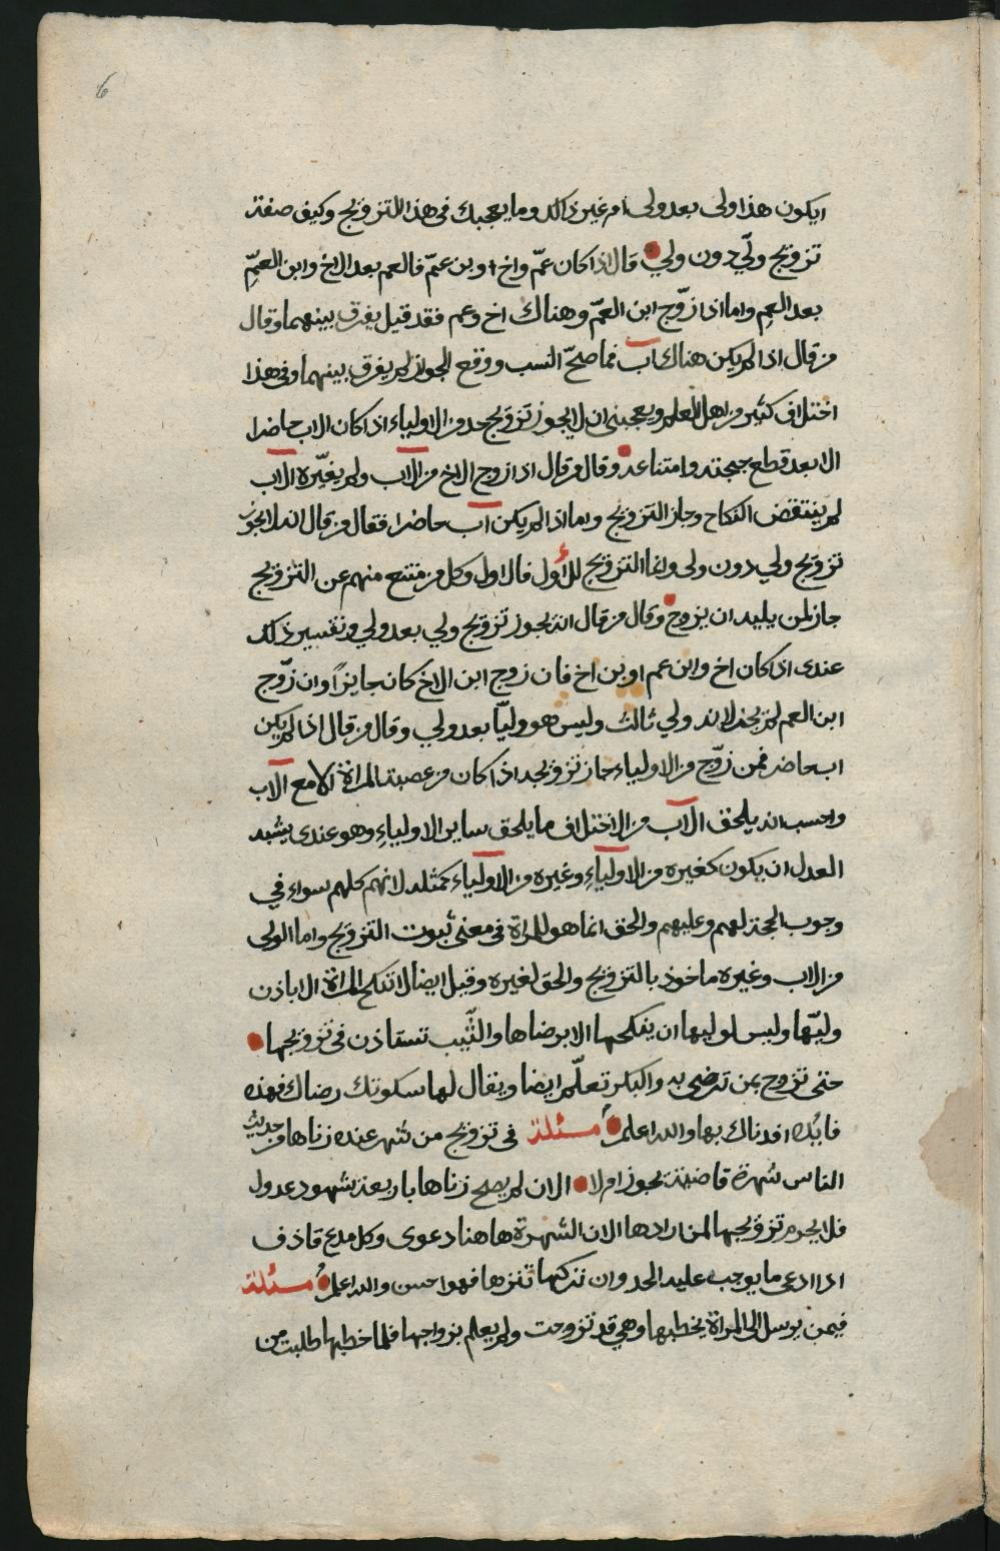 6
ايكون هذا ولى بعد ولى ام غير ذالك وما يعجبك فى هذا التزويج وكيف صفة
تزويج ولّي دون ولي قال اذا كان عمّ واخ او بن عمّ فالعم بعد الاخ وابن العمّ
بعد العم واما اذا زوّج ابن العمّ وهناك اخ وعم فقد قيل يفرق بينهما وقال
من قال اذا لم يكن هناك اب فما صحّ النسب ووقع الجواز لم يفرق بينهما وفى هذا
اختلاف كثير من اهل العلم ويعجبنى ان لا يجوز تزويج حد من الاولياء اذا كان الاب حاضرا
الا بعد قطع حجته وامتناعه وقال من قال اذا زوج الاخ من الاب ولم يغيّره الاب
لم ينتقض النكاح وجاز التزويج وبما اذا لم يكن اب حاضرا فقال من قال انه لا يجوز
تزويج ولي دون ولى وانما التزويج للأول فالاول وكل من متنع منهم عن التزويج
جاز لمن يليه ان يزوج وقال من قال انه يجوز تزويج ولي بعد ولي وتفسير ذلك
عندى اذا كان اخ وابن عم او بن اخ فان زوج ابن الاخ كان جايزاً وان زوّج
ابن العم لم يجز لانه ولي ثالث وليس هو وليّا بعد ولي وقال من قال اذا لم يكن
اب حاضر فمن زوّج من الاولياء جاز تزويجه اذا كان من عصبة المراة الا مع الاب
واحسب انه يلحق الاب من الاختلاف ما يلحق ساير الاولياء وهو عندى يشبه
العدل ان يكون كغيره من الاولياء وغيره من الاولياء كمثله لانهم كلهم سواء في
وجوب الحجة لهم وعليهم والحق انما هو للمراة فى معنى ثبوت التزويج واما الولى
من الاب وغيره ماخوذ بالتزويج والحق لغيره وقيل ايضا لا تنكح المراة الا باذن
وليّها وليس لوليها ان ينكحها الا برضاها والثّيب تستاذن فى تزويجها
حتى تزوج بمن ترضى به والبكر تعلّم ايضا ويقال لها سكوتك رضاك فهذه
فايده افدناك بها والله اعلم مسئلة فى تزويج من شهر عنده زناها من حديث
الناس شهرة قاضية يجوز ام لا الا ان لم يصح زناها باربعة شهود عدول
فلا يحرم تزويجها لمن ارادها الا ان الشهرة هاهنا دعوى وكل مدع قاذف
اذا ادعى ما يوجب عليه الحد وان تركها تنزها فهو احسن والله اعلم مسئلة
فيمن يرسل الى المراة يخطبها وهي قد تزوجت ولم يعلم بزواجها فلما خطبها طلبت من